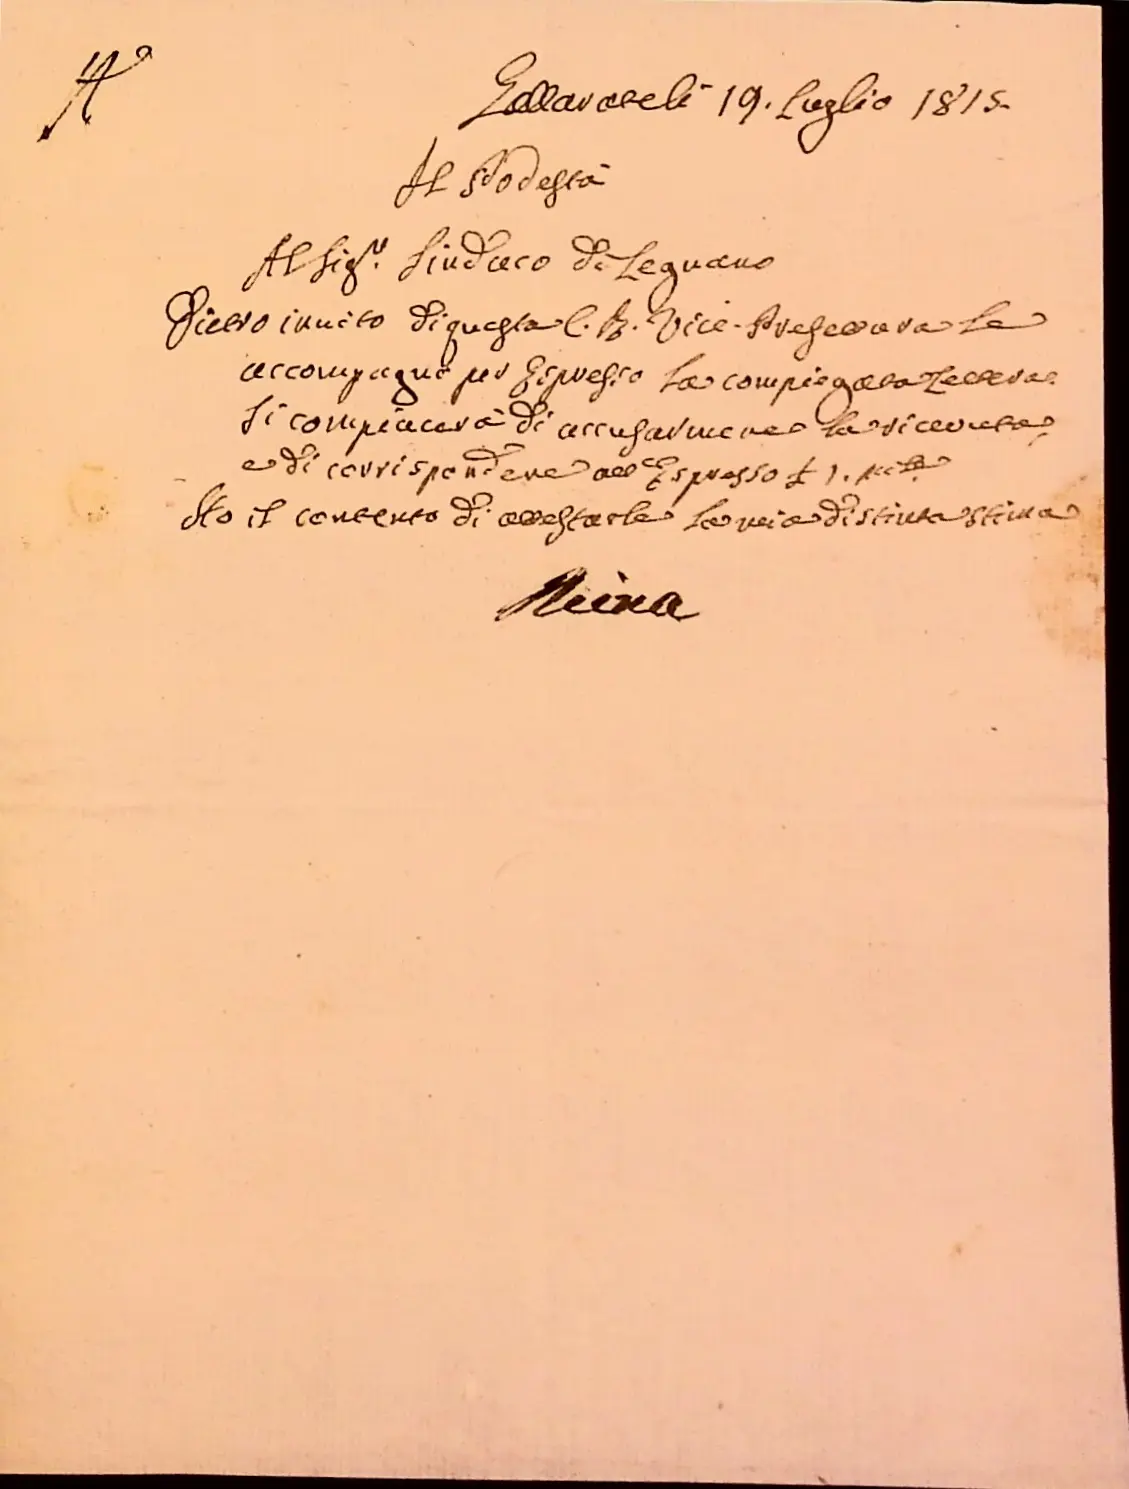 Gallarate li 19. Luglio 1815
Il Podestà
Al Sigr. Sindaco di Legnano
Dietro invito di questa C. R. Vice-Prefettura Le
accompagno per Espresso la compiegata Lettera.
Si compiacerà di accusarmene la ricevuta,
e di corrispondere all'Espresso £ 1.
Ho il contento di attestarle la mia distinta stima
Reina